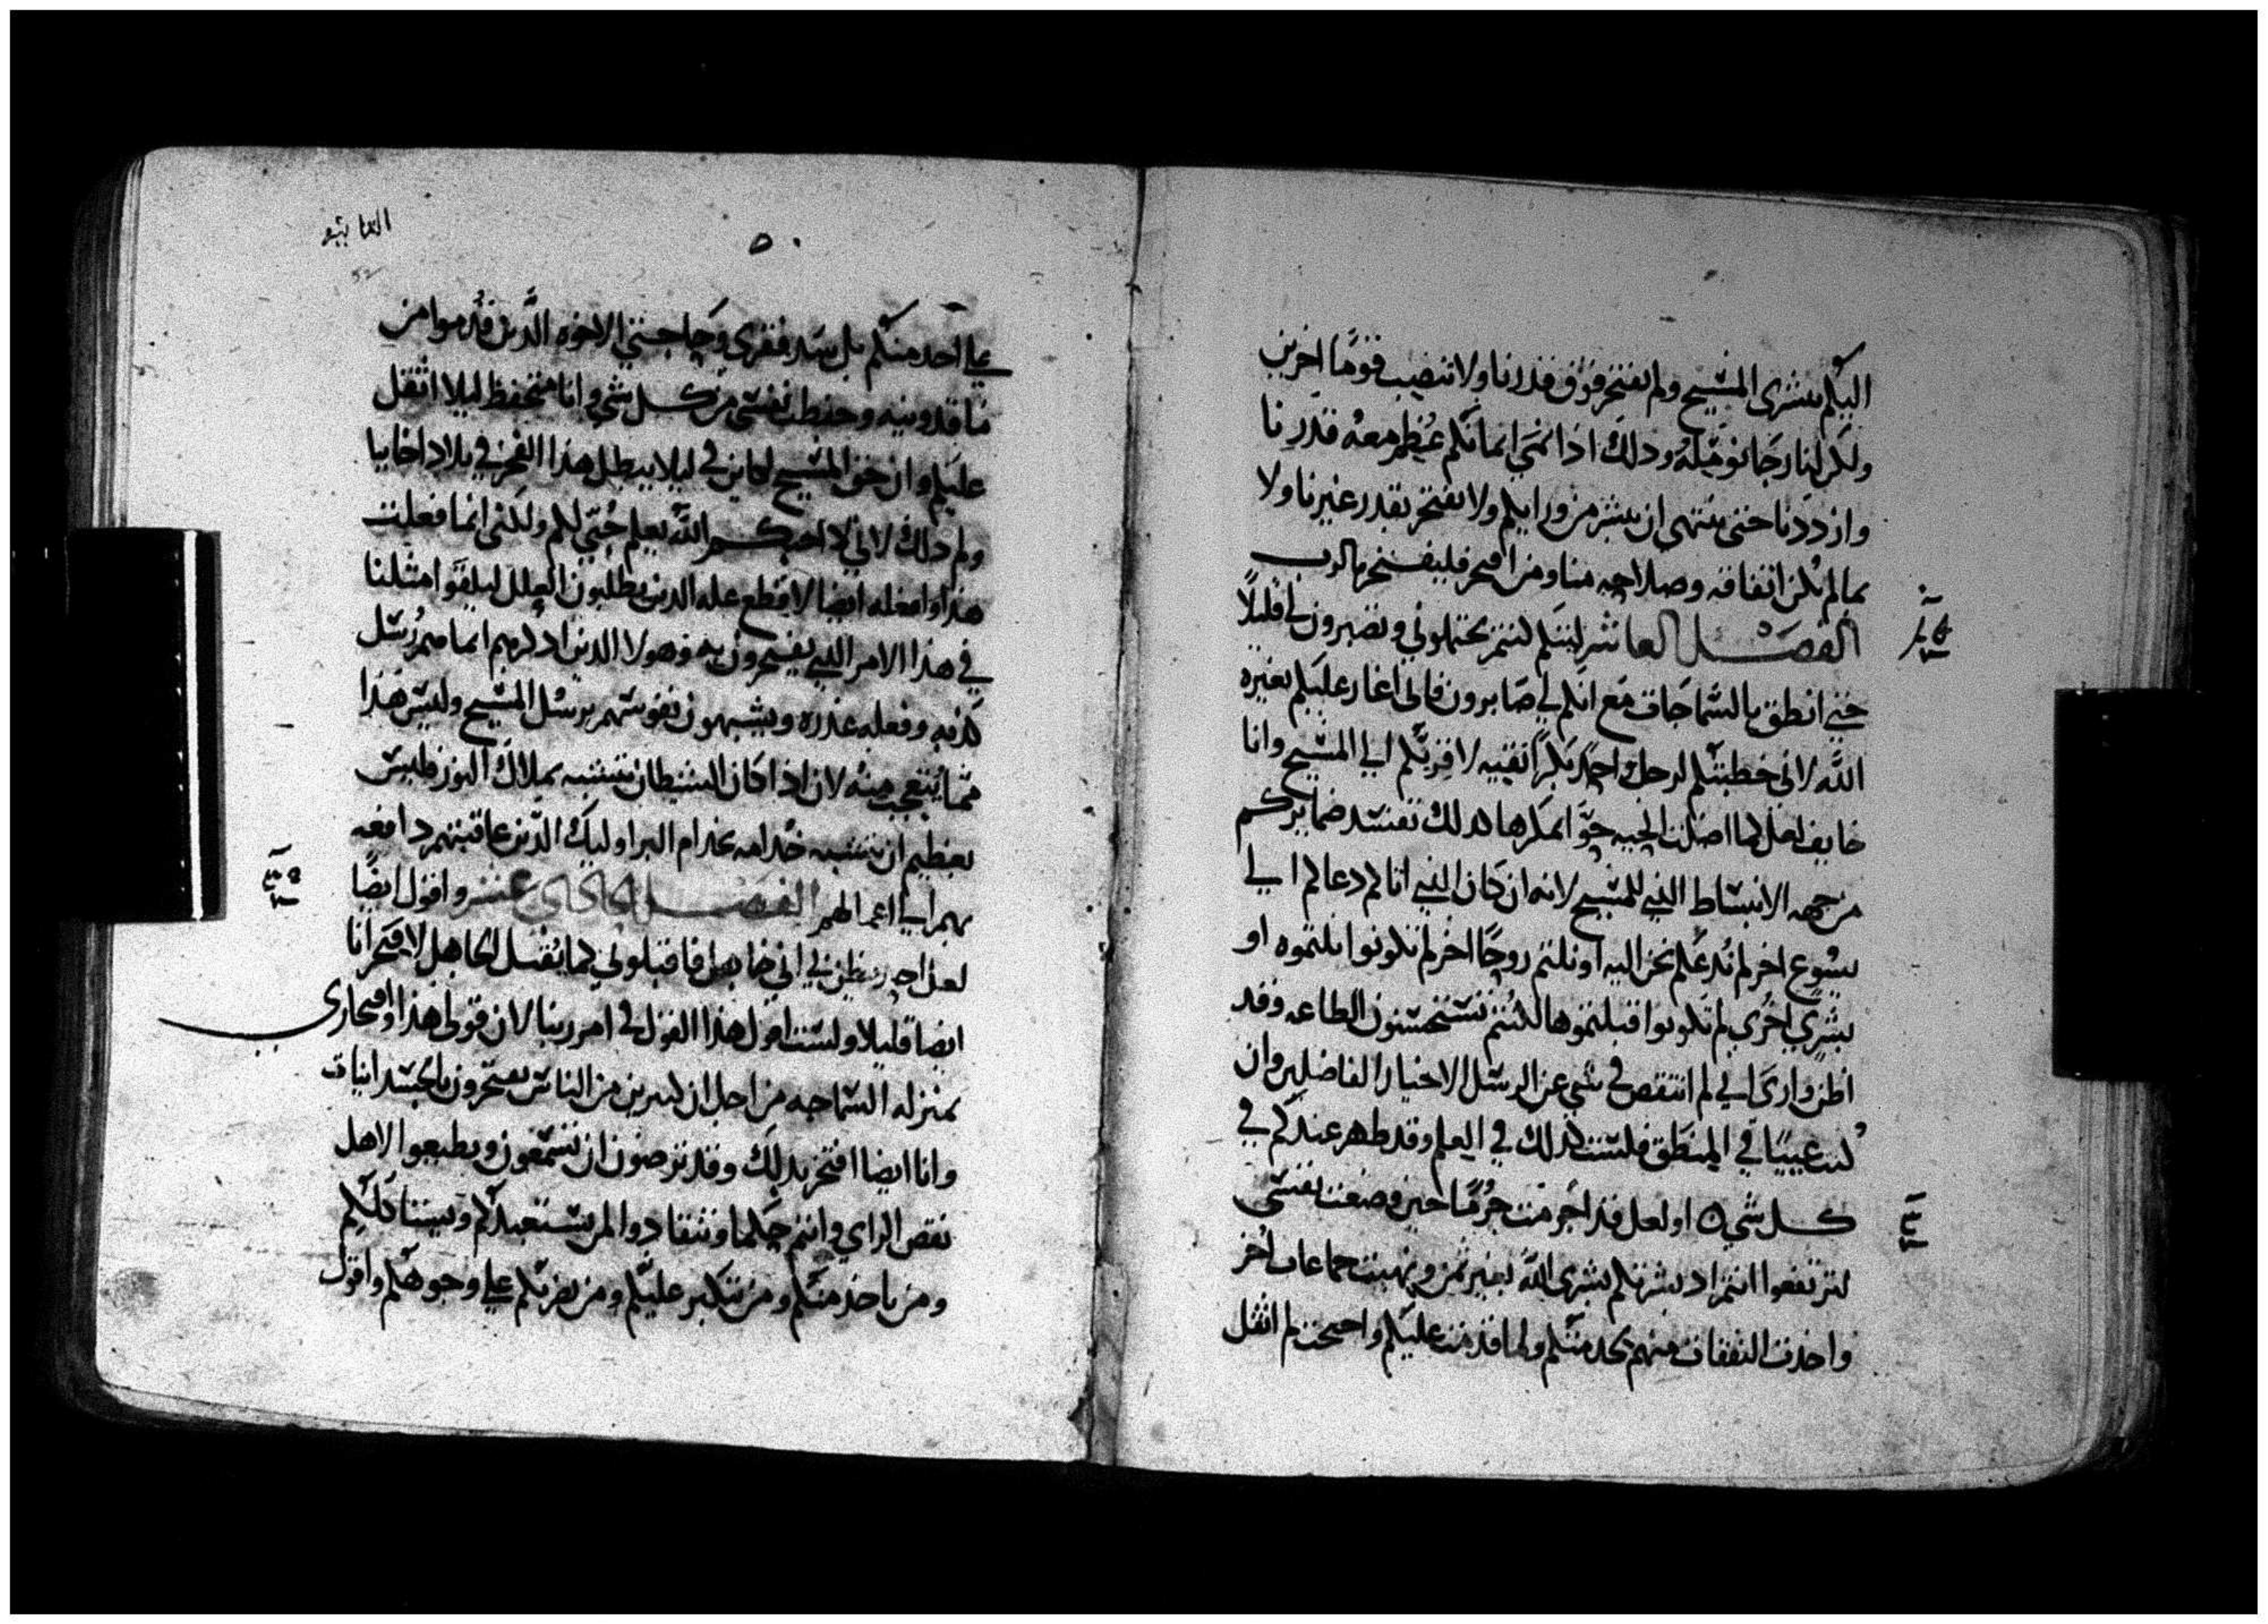 اليكم ببشرى المسيح ولم نفتخر فوق قدرنا ولا بنصب قوما اخرين
ولكن لنا رجا نوميله ودلك اذا نمى ايمانكم عظم معه قدرنا
وازددنا حتى ننتهى ان نبشر من ورايكم ولا نفتخر بقدر غيرنا ولا
بما لم يكن اتفاقه وصلاحه منا ومن افتخر فليفتخر بالرب
الفصل العاشر ليتكم كنتم تحتملوني وتصبرون لي قليلاً
حتى انطق بالسماجات مع انكم لي صابرون فاني اغار عليكم بغيره
الله لاني خطبتكم لرجل احد بكراً نقيه لاقربكم الي المسيح وانا
خايف لعل كما اضلت الحيه حوّا بمكرها كدلك تفسد ضمايركم
من جهه الانبساط الذي للمسيح لانه ان كان الذي اتاكم دعاكم الي
يسوع اخر لم ندعكم نحن اليه او نلتم روحًا اخر لم تكونوا نلتموه او
بشري اخري لم تكونوا قبلتموها لكنتم تستحسنون الطاعه وقد
اظن واري اني لم انتقص في شي عن الرسل الاخيار الفاضلين وان
كنت عيياً في المنطق فلست كدلك في العلم وقد ظهر عندكم في
كل شي ه او لعل قد اجرمت جرمًا حين وضعت نفسي
لترتفعوا انتم اد بشرتكم بشرى الله بغير ثمن ونهبت جماعات اخر
واخذت النفقات منهم لخدمتكم ولما قدمت عليكم واحتجت لم اثقل
٥٠
علي احد منكم بل سد فقري وحاجتي الاخوه الذين قدموا من
ماقدونيه وحفظت نفسي من كل شي وانا متحفظ ليلا اثقل
عليكم وان حق المسيح لكاين في ليلا يبطل هذا الفخر في بلاد اخاييا
ولم دلك لاني لا احبكم الله يعلم حبي لكم ولكني انما فعلت
هذا وافعله ايضا لاقطع عله الدين يطلبون العلل ليلفوا مثلنا
في هذا الامر الذي يفتخرون به وهولا الدين ادكرهم انما هم رسل
كذبه وفعله غدره ويشبهون نفوسهم برسل المسيح وليس هذا
مما يتعجب منه لان اذا كان الشيطان يتشبه بملاك النور فليس
بعظيم ان يتشبه خدامه بخدام البر اوليك الذين عاقبتهم دافعه
بهم الي اعمالهم الفصل الحادي عشر واقول ايضًا
لعل احد يظن بي اني جاهل فاقبلوني كما يقبل الجاهل لافتخر انا
ايضا قليلا ولست اقول هذا القول في امر ربنا لان قولي هذا وافتخاري
بمنزله السماجه من اجل ان كثيرين من الناس يفتخرون بالجسدانيات
وانا ايضا افتخر بدلك وقد ترضون ان تسمعون وتطيعوا لاهل
نقص الراي وانتم حكما وتنقادوا لمن يستعبدكم
ومن ياخذ منكم ومن يتكبر عليكم ومن يضربكم علي وجوهكم واقول